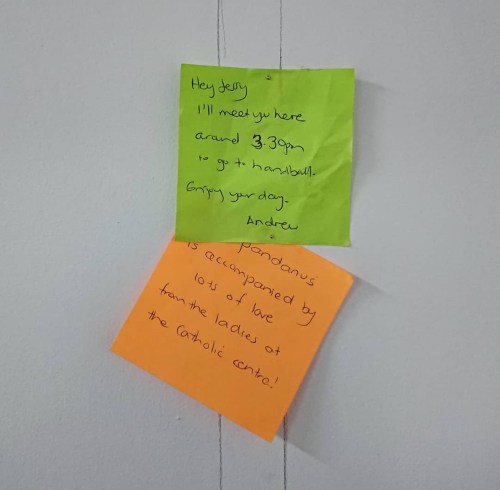 Hey Jerry
I'll meet you here
around 3.30pm
to go to handball.
Enjoy your day.
Andrew
pandanus
is accompanied by
lots of love
from the ladies at
the Catholic centre!